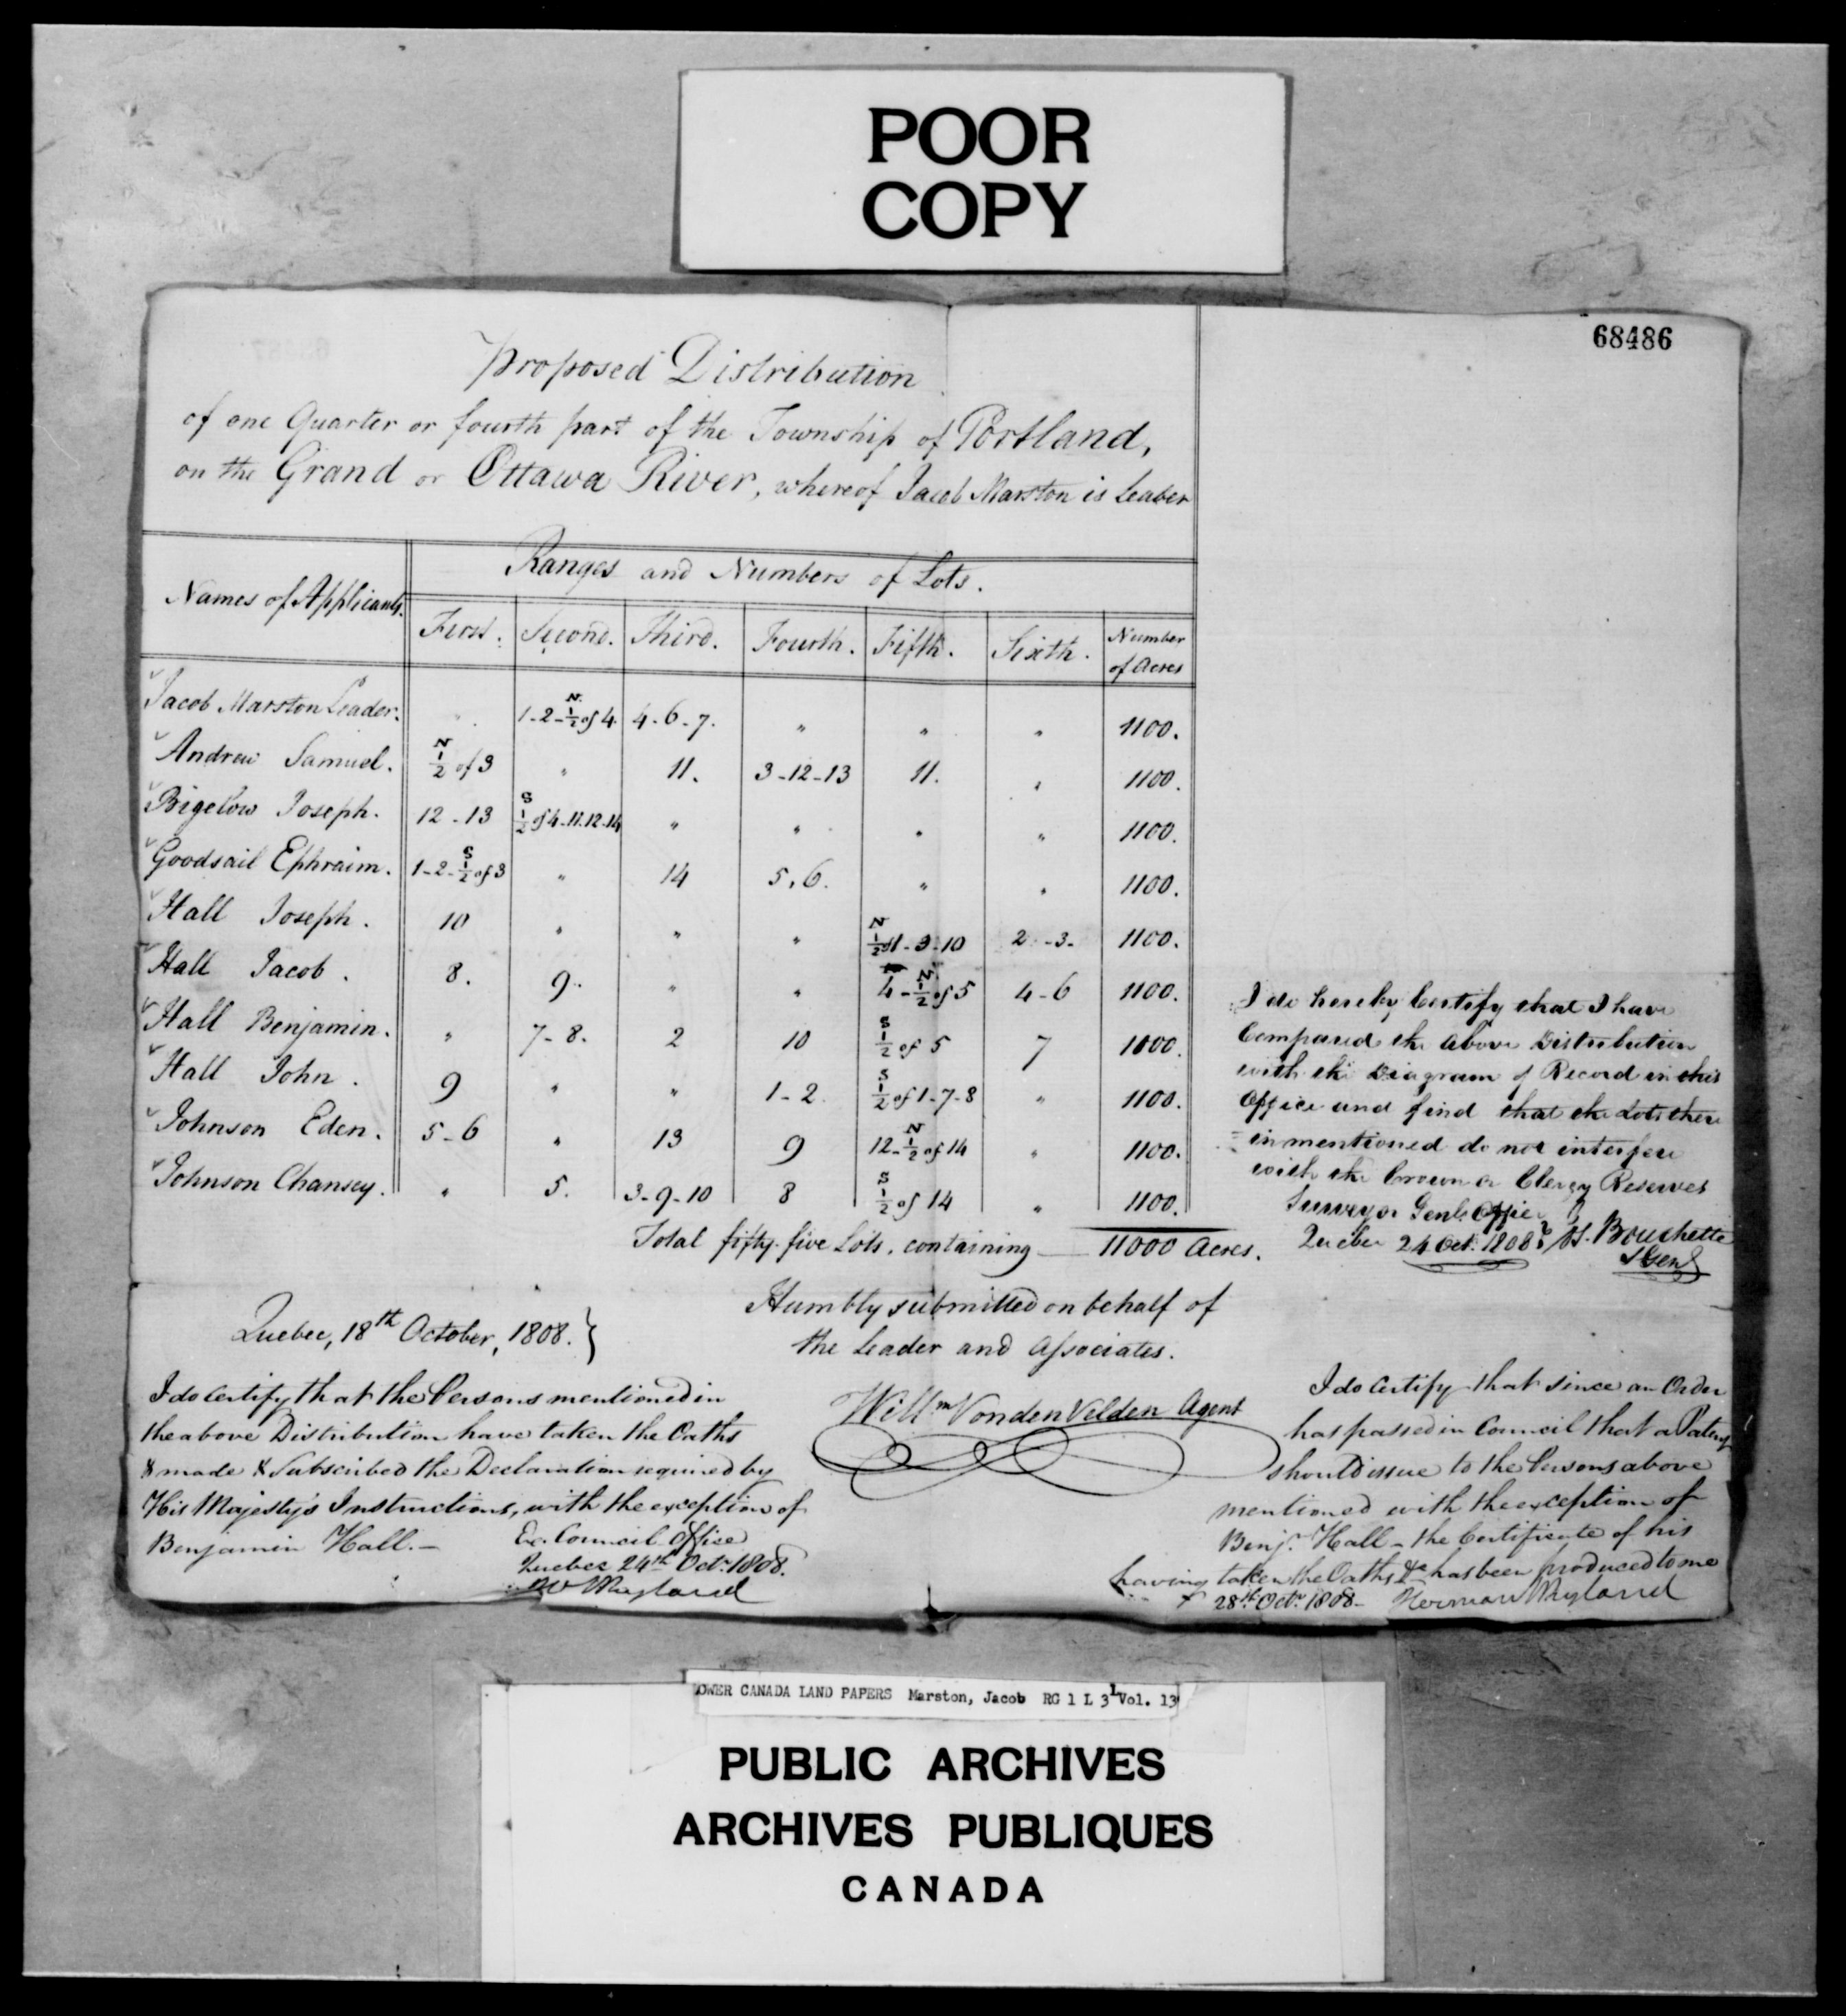 POOR
COPY
68486
Proposed Distribution
of one Quarter or fourth part of the Township of Portland,
on the Grand or Ottawa River, whereof Jacob Marston is Leader
Names of Applicants. Ranges and Numbers of Lots.
First. Second. Third. Fourth. Fifth. Sixth. Number of Acres
Jacob Marston Leader. " 1-2-N 1/2 of 4. 4-6-7. " " " 1100.
Andrew Samuel. N 1/2 of 3 " 11. 3-12-13 11. " 1100.
Bigelow Joseph. 12-13 S 1/2 of 4-11.12-14 " " " " 1100.
Goodsail Ephraim. 1-2-S 1/2 of 3 " 14 5.6. " " 1100.
Hall Joseph. 10 " " " N 1/2 of 1-3-10 2-3- 1100.
Hall Jacob. 8. 9. " " 4-N 1/2 of 5 4-6 1100.
Hall Benjamin. " 7-8. 2 10 S 1/2 of 5 7 1100.
Hall John. 9 " " 1-2 S 1/2 of 1-7-8 " 1100.
Johnson Eden. 5-6 " 13 9 12-N 1/2 of 14 " 1100.
Johnson Chansey. " 5. 3-9-10 8 S 1/2 of 14 " 1100.
Total fifty-five Lots, containing — 11000 Acres.
I do hereby Certify that I have
Compared the above Distribution
with the Diagram of Record in this
Office and find that the Lots there
=in mentioned do not interfere
with the Crown or Clergy Reserves
Surveyor Genls Office
Quebec 24 Oct. 1808 Bouchette
SGenl
Quebec, 18th October, 1808.}
Humbly submitted on behalf of
the Leader and Associates.
Willm Vonden Velden Agent
I do certify that the Persons mentioned in
the above Distribution have taken the Oaths
& made & Subscribed the Declaration required by
His Majesty's Instructions, with the exception of
Benjamin Hall.—
Ex. Council Office
Quebec 24th Octr. 1808.
HW Ryland
I do certify that since an Order
has passed in Council that a Patent
should issue to the Persons above
mentioned with the exception of
Benj. Hall - the Certificate of his
having taken the Oaths &c has been produced to me
28th Octr. 1808— Herman W Ryland
OWER CANADA LAND PAPERS Marston, Jacob RG 1 L 3L Vol. 13
PUBLIC ARCHIVES
ARCHIVES PUBLIQUES
CANADA